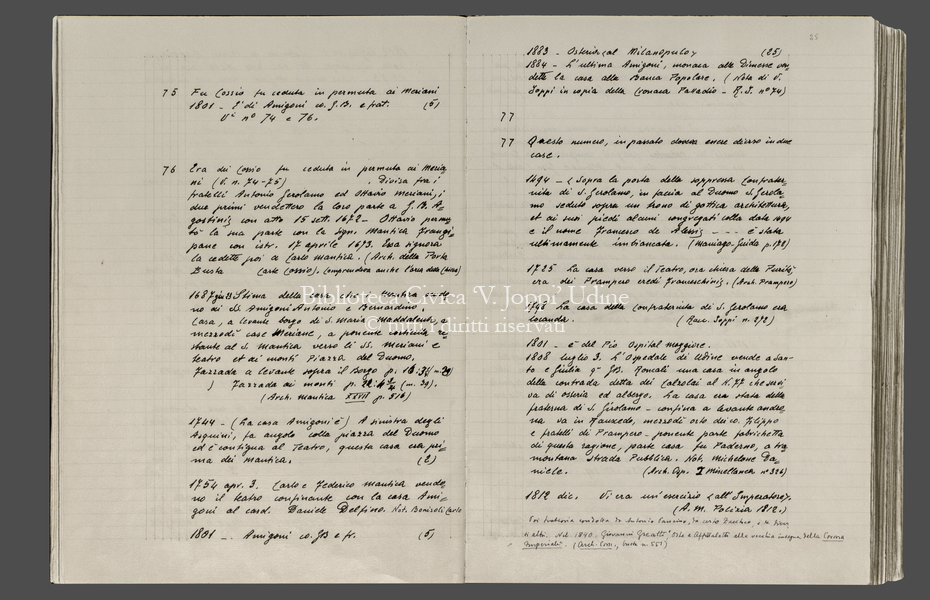 75 Fu Cossio fu ceduta in permuta ai Meriani
1801 - I' di Amigoni co. G.B. e frat. (5)
Vi nº 74 e 76.
76 Era dei Cossio fu ceduta in permuta ai Meria-
ni (V. n. 74-75) . Divisa fra i
fratelli Antonio Gerolamo ed Ottavio Meriani, i
due primi vendettero la loro parte a G.B. A-
gostinis con atto 15 sett. 1672 - Ottavio permu-
tò la sua parte con la Sign. Mantica Frangi-
pane con istr. 17 aprile 1673. Essa signora
la cedette poi a Carlo Mantica. (Arch. della Porta
Busta Carte Cossio). Comprendeva anche l'area della
1687 Stima della
no di SS. Amigoni Antonio e Bernardino.
Casa, a levante borgo di S. Maria Maddalena, a
mezzodì case Meriane, a ponente cortivo re-
stante al S. Mantica verso li SS. Meriani e
teatro et dei monti Piazza del Duomo.
Fazzada a levante sopra il Borgo p.
) Fazzada ai monti p. (m. 39).
(Arch. Mantica XXVII p. 516)
1744 - (La casa Amigoni è) A sinistra degli
Asquini, fa angolo colla piazza del Duomo
ed è contigua al Teatro, questa casa era pri-
ma dei Mantica. (2)
1754 apr. 3. Carlo e Federico Mantica vendo-
no il teatro confinante con la casa Ami-
goni al card. Daniele Delfino. Not. Bonisoli Carlo
1801 - Amigoni co. GB e fr. (5)
25
1883 - Osteria "al Milanopulo" (25)
1884 - L'ultima Amigoni, monaca alle Dimesse ven-
dette la casa alla Banca Popolare. (Nota di V.
Joppi in copia della Cronaca Palladio - R.J. nº 74)
77
77 Questo numero, in passato doveva essere diviso in due
case.
1494 - "Sopra la porta della soppressa Confrater-
nita di S. Girolamo, in facia al Duomo S. Gerola-
mo seduto sopra un trono di gottica architettura,
et ai suoi piedi alcuni congregati colla data 1494
e il nome Francesco de Alessiis - - - è stata
ultimamente imbiancata. (Maniago. Guida p. 172)
1725 La casa verso il Teatro, ora chiesa delle Purità
era dei Prampero eredi Franceschinis. (Arch. Prampero)
La casa della confraternita di S. Girolamo era
locanda. (Racc. Joppi n. 272)
1801 - è del Pio Ospital maggiore.
1808 luglio 3. L'Ospedale di Udine vende a San-
to e Giulia qm GB. Roncali una casa in angolo
della contrada detta dei Calzolai al N. 77 che servi-
va di osteria ed albergo. La casa era stata della
fraterna di S. Girolamo - confina a levante androna
va in Rauscedo, mezzodì orto dei co. Filippo
e fratelli di Prampero - ponente parte fabrichetta
di questa ragione, parte casa fu Paderno, a tra-
montana strada Pubblica. Not. Michelone Da-
niele. (Arch. Osp. I Miscellanea nº 326)
1812 dic. Vi era un'esercizio "all'Imperatore".
(A.M. Polizia 1812.)
Poi trattoria condotta da Antonio
di altri. Nel 1840 Giovanni Oste e Affittaletti alla vecchia insegna della Corona
Imperiale. (Arch. Com., busta n. 551)
Biblioteca Civica 'V. Joppi' Udine
© tutti i diritti riservati